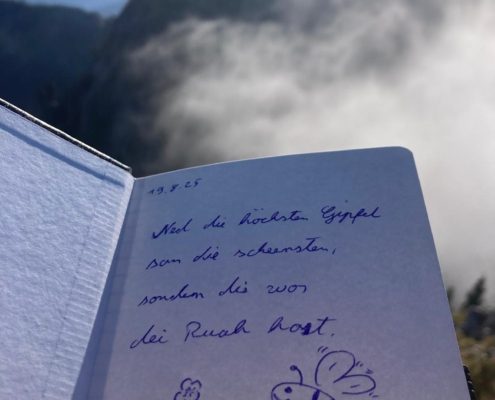 19.8.25
Ned die höchsten Gipfel
san die scheensten,
sondern die wos
dei Ruah host.